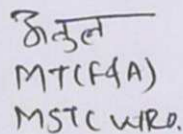 अतुल
MT(F&A)
MSTC WRO.